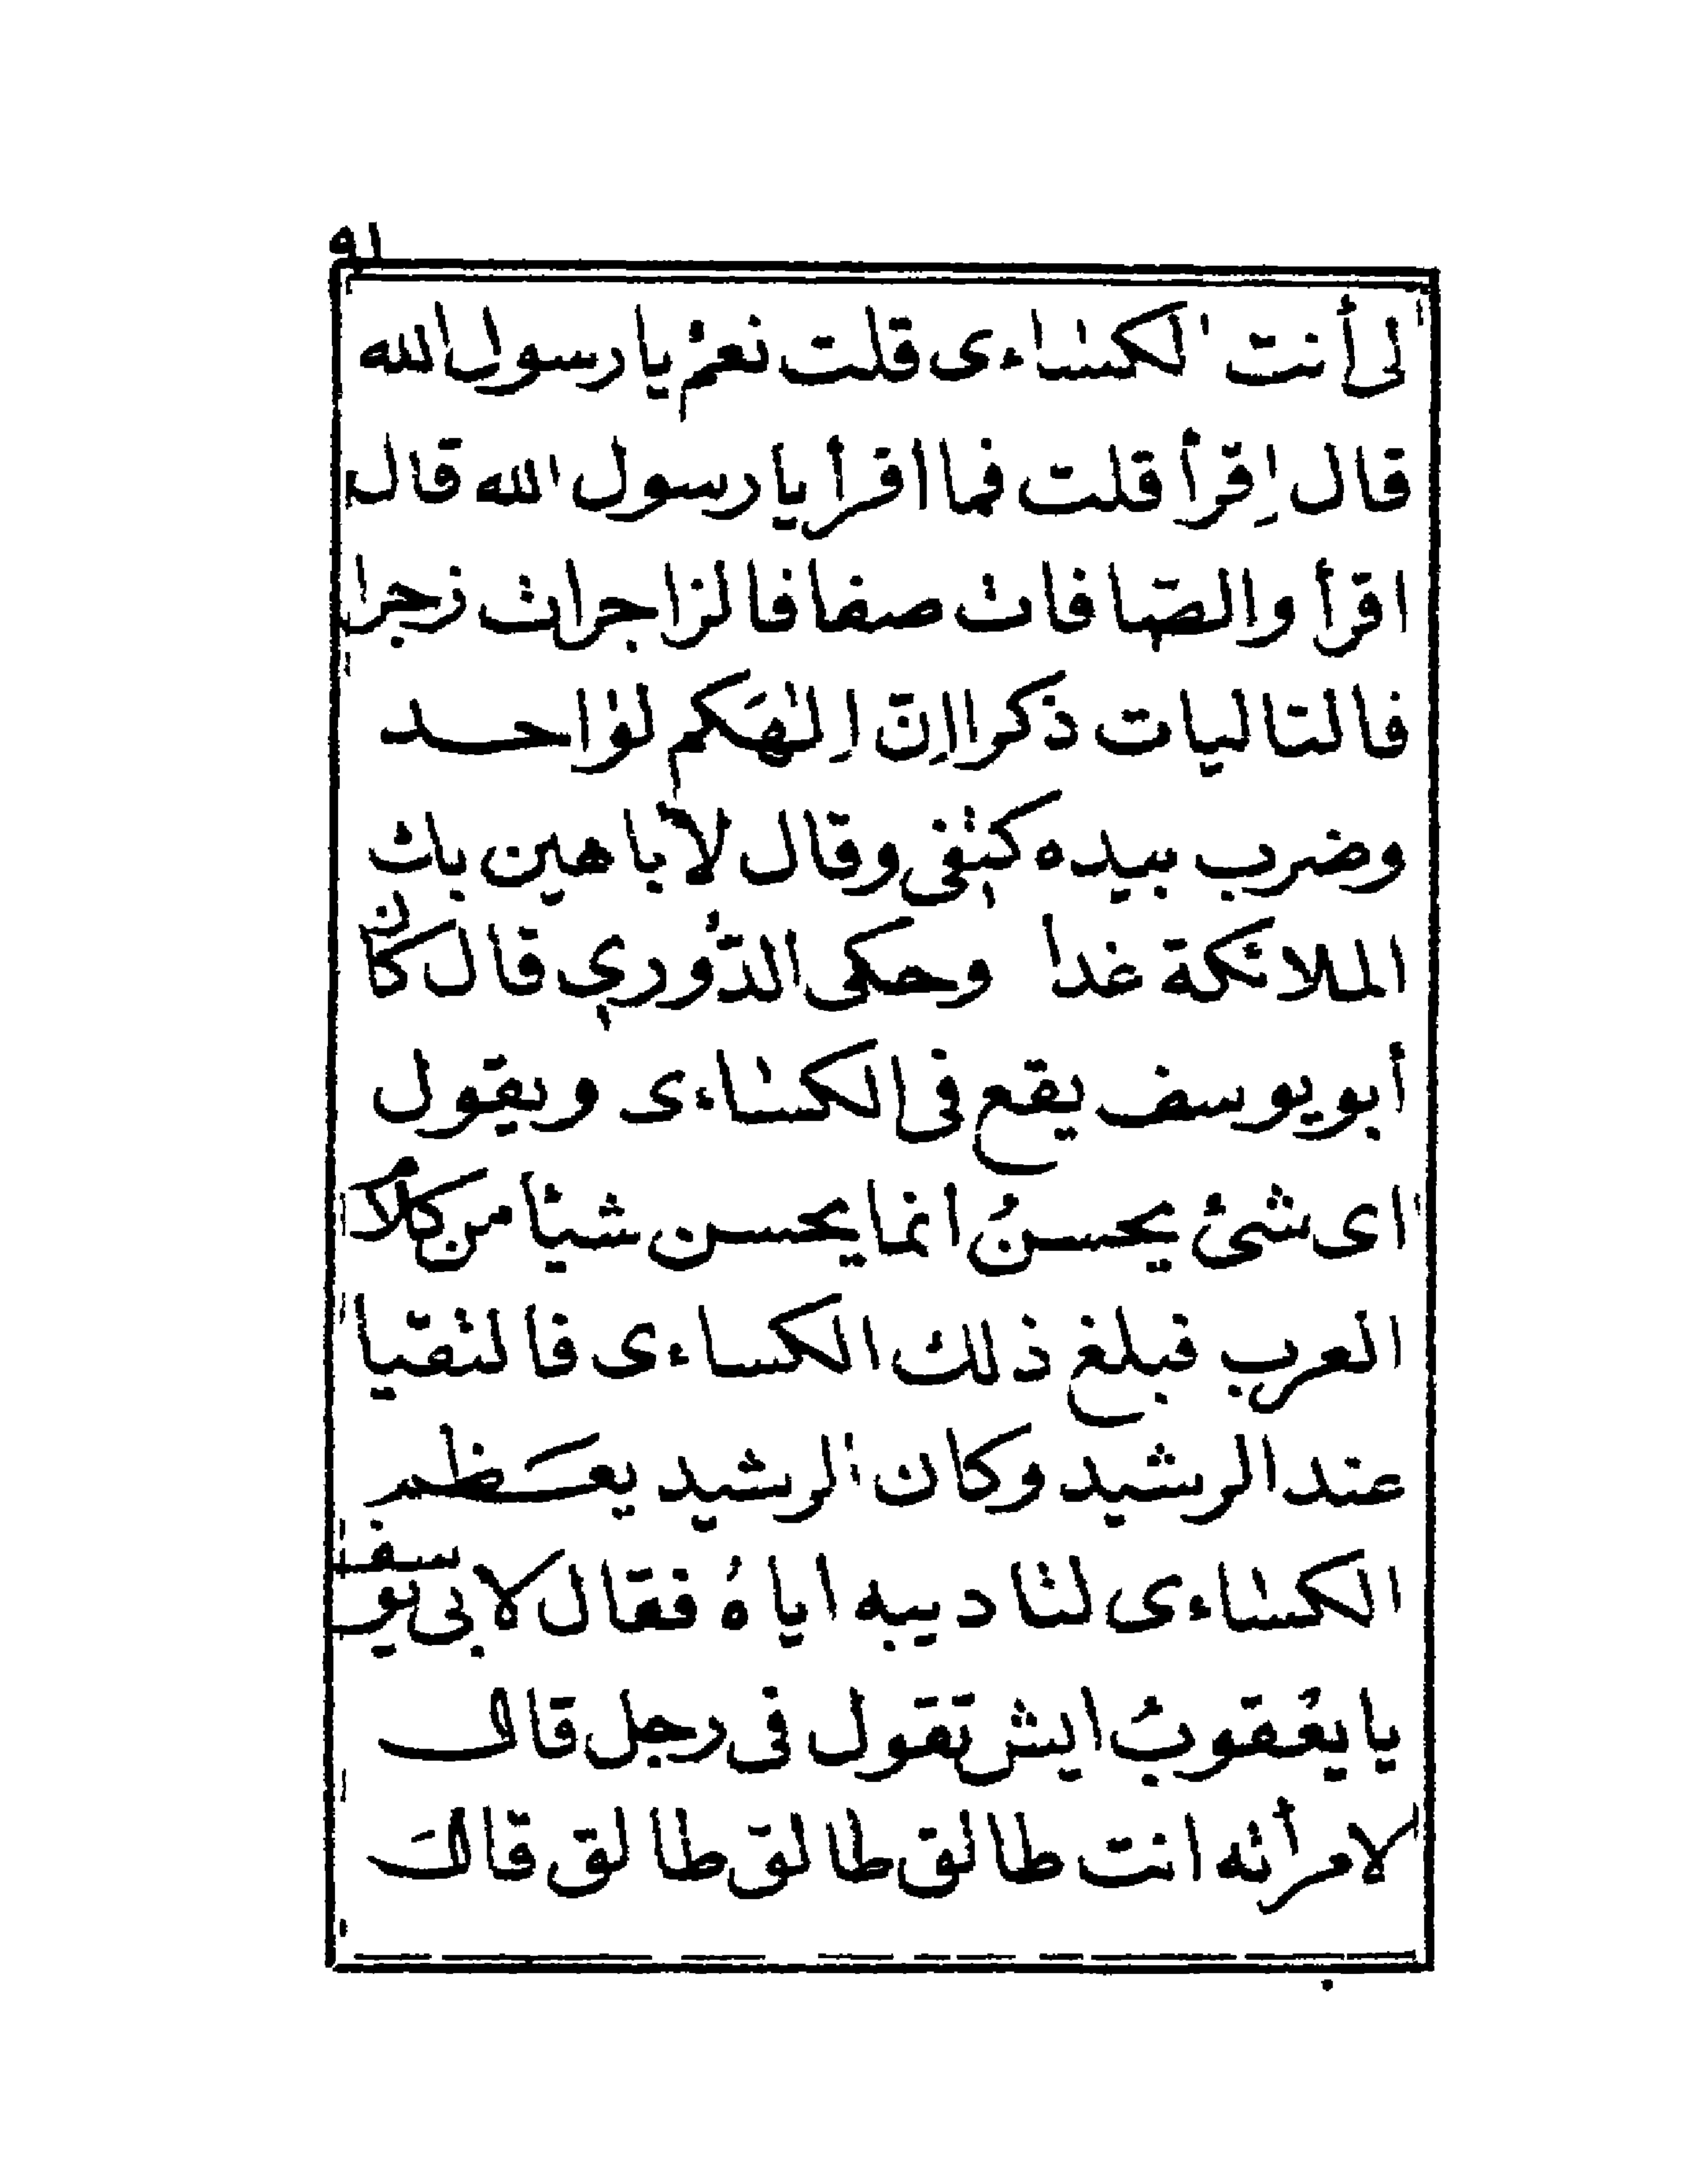 ٩١
لى أنت الكساءى قلت نعم يا رسول الله
قال اِقرأ قلت فما اقرأ يا رسول الله قال
اقرأ والصّافات صفا فالزاجرات زجرا
فالتاليات ذكرا اِنّ اِلٰهَكم لوٰاحد
وضرب بيده كتفى وقال لأباهين بك
الملائكة غدا وحكى الدُّوري قال كان
أبو يوسف يقع فى الكساءى ويقول
اى شئ يحسنُ انما يحسن شيئا من كلام
العرب فبلغ ذلك الكساءى فالتقيا
عند الرشيد وكان الرشيد يعَظم
الكساءى لتاديبه اياهُ فقال لابى يوسف
يا يعْقوبُ ايش تقول فى رجل قال
لامرأته انت طالق طالق طالق قالَ